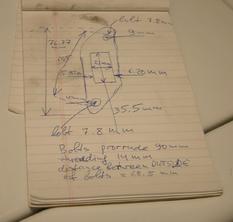 bolt 7.8mm
9mm
76.77
mm
6.20mm
35.5mm
bolt 7.8mm
Bolts protrude 90mm
threading 14mm
distance between OUTSIDE
of bolts = 68.5mm